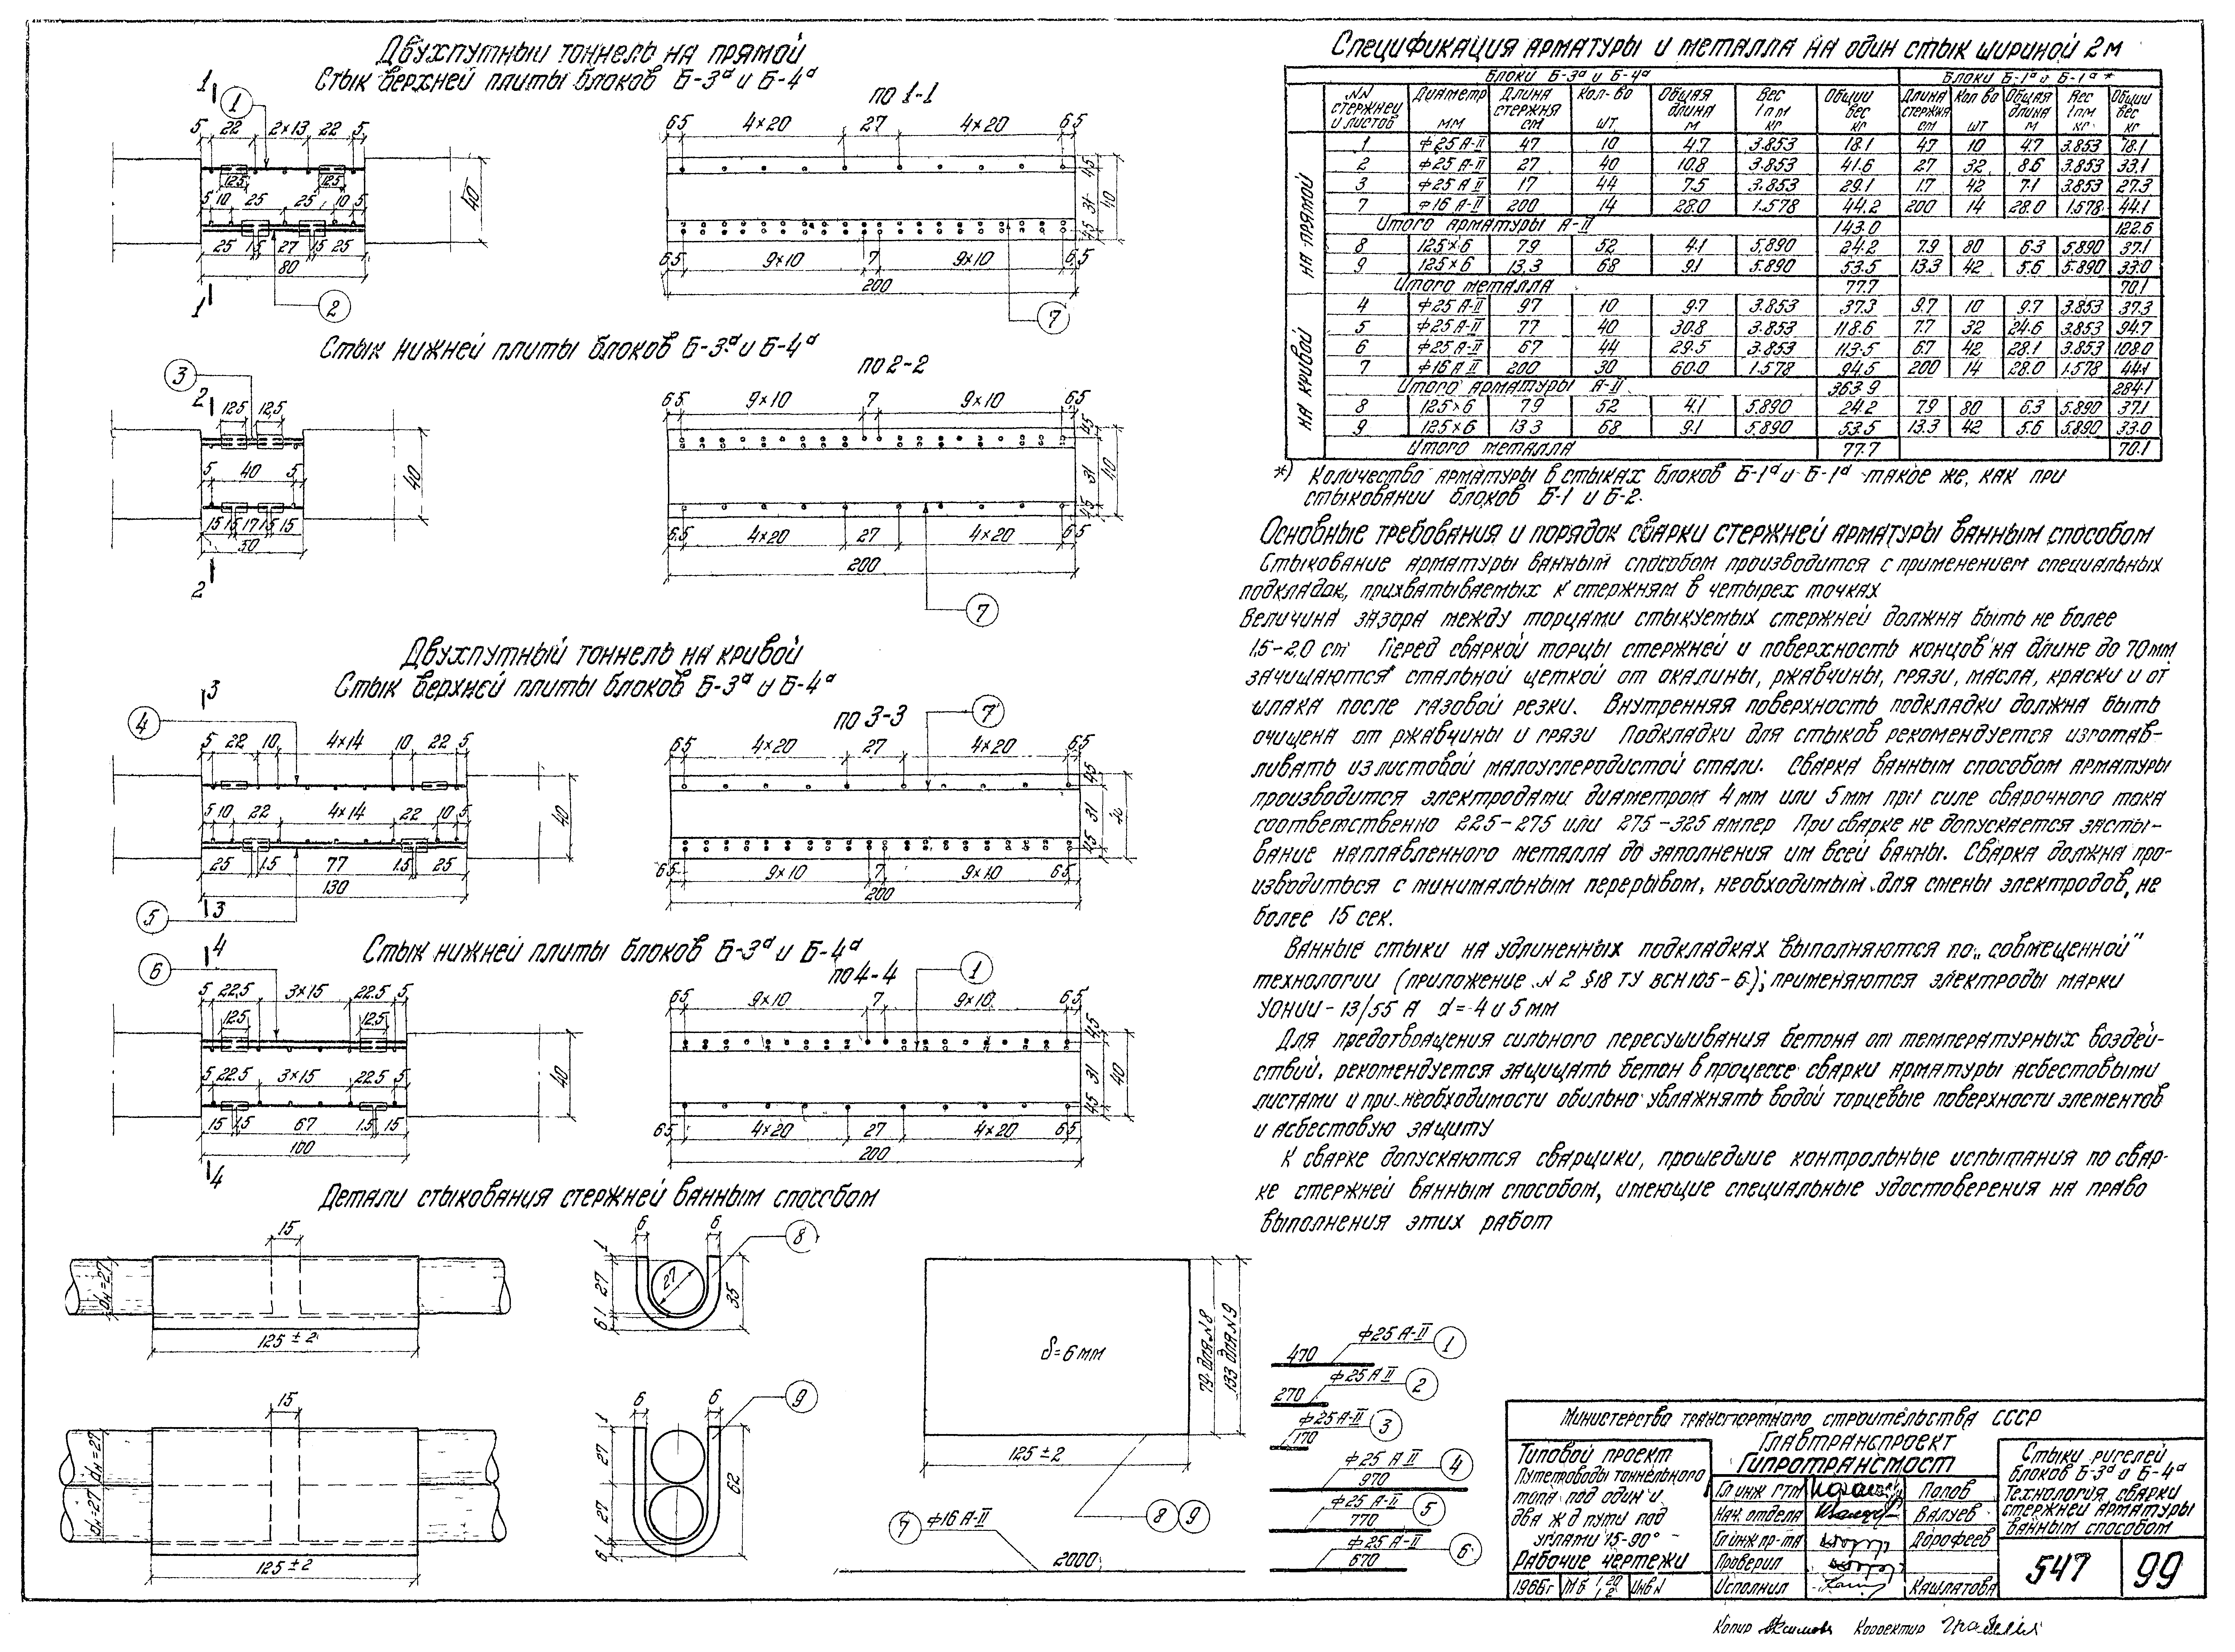 Двухпутный тоннель на прямой
Стык верхней плиты блоков Б-3ᵃ и Б-4ᵃ
по 1-1
1
1
5 22 2×13 22 5
12.5 12.5
5 10 25 25 10 5
25 1.5 27 1.5 25
80
40
1
2
6.5 4×20 27 4×20 6.5
4.5 31 4.5 40
6.5 9×10 7 9×10 6.5
200
7
Стык нижней плиты блоков Б-3ᵃ и Б-4ᵃ
по 2-2
3
2
12.5 12.5
5 40 5
15 1.5 17 1.5 15
50
40
2
6.5 9×10 7 9×10 6.5
4.5 31 4.5 40
6.5 4×20 27 4×20 6.5
200
7
Двухпутный тоннель на кривой
Стык верхней плиты блоков Б-3ᵃ и Б-4ᵃ
по 3-3
3
4
5 22 10 4×14 10 22 5
5 10 22 4×14 22 10 5
25 1.5 77 1.5 25
130
40
5
3
7
6.5 4×20 27 4×20 6.5
4.5 31 4.5 40
6.5 9×10 7 9×10 6.5
200
Стык нижней плиты блоков Б-3ᵃ и Б-4ᵃ
по 4-4
4
6
5 22.5 3×15 22.5 5
12.5 12.5
5 22.5 3×15 22.5 5
15 1.5 67 1.5 15
100
40
4
1
6.5 9×10 7 9×10 6.5
4.5 31 4.5 40
6.5 4×20 27 4×20 6.5
200
Детали стыкования стержней ванным способом
15
dн=27
125±2
6 6
8
1 27 1 6
27
35
15
dн=27
dн=27
125±2
6 6
9
1 27 27 1 6
62
δ=6мм
79 для N8
133 для N9
125±2
8 9
7 ф16 А-II
2000
ф25 А-II 1
470
ф25 А-II 2
270
ф25 А-II 3
170
ф25 А-II 4
970
ф25 А-II 5
770
ф25 А-II 6
670
Спецификация арматуры и металла на один стык шириной 2м
Блоки Б-3ᵃ и Б-4ᵃ Блоки Б-1ᵃ и Б-1ᵃ *
NN стержней и листов Диаметр мм Длина стержня см Кол-во шт Общая длина м Вес 1пм кг Общий вес кг Длина стержня см Кол во шт Общая длина м Вес 1пм кг Общий вес кг
На прямой
1 ф25 А-II 47 10 4.7 3.853 18.1 47 10 4.7 3.853 18.1
2 ф25 А-II 27 40 10.8 3.853 41.6 27 32 8.6 3.853 33.1
3 ф25 А II 17 44 7.5 3.853 29.1 17 42 7.1 3.853 27.3
7 ф16 А-II 200 14 28.0 1.578 44.2 200 14 28.0 1.578 44.1
Итого арматуры А-II 143.0 122.6
8 125×6 7.9 52 4.1 5.890 24.2 7.9 80 6.3 5.890 37.1
9 125×6 13.3 68 9.1 5.890 53.5 13.3 42 5.6 5.890 33.0
Итого металла 77.7 70.1
На кривой
4 ф25 А-II 97 10 9.7 3.853 37.3 97 10 9.7 3.853 37.3
5 ф25 А-II 77 40 30.8 3.853 118.6 77 32 24.6 3.853 94.7
6 ф25 А-II 67 44 29.5 3.853 113.5 67 42 28.1 3.853 108.0
7 ф16 А II 200 30 60.0 1.578 94.5 200 14 28.0 1.578 44.1
Итого арматуры А-II 363.9 284.1
8 125×6 7.9 52 4.1 5.890 24.2 7.9 80 6.3 5.890 37.1
9 125×6 13.3 68 9.1 5.890 53.5 13.3 42 5.6 5.890 33.0
Итого металла 77.7 70.1
*) Количество арматуры в стыках блоков Б-1ᵃ и Б-1ᵃ такое же, как при
стыковании блоков Б-1 и Б-2.
Основные требования и порядок сварки стержней арматуры ванным способом
Стыкование арматуры ванным способом производится с применением специальных
подкладок, прихватываемых к стержням в четырех точках
Величина зазора между торцами стыкуемых стержней должна быть не более
1.5-2.0 см Перед сваркой торцы стержней и поверхность концов на длине до 70мм
зачищаются стальной щеткой от окалины, ржавчины, грязи, масла, краски и от
шлака после газовой резки. Внутренняя поверхность подкладки должна быть
очищена от ржавчины и грязи Подкладки для стыков рекомендуется изготав-
ливать из листовой малоуглеродистой стали. Сварка ванным способом арматуры
производится электродами диаметром 4мм или 5мм при силе сварочного тока
соответственно 225-275 или 275-325 ампер При сварке не допускается засты-
вание наплавленного металла до заполнения им всей ванны. Сварка должна про-
изводиться с минимальным перерывом, необходимым для смены электродов, не
более 15 сек.
Ванные стыки на удлиненных подкладках выполняются по „совмещенной"
технологии (приложение N 2 §18 ТУ ВСН105-6); применяются электроды марки
УОНИИ-13/55 А d=4 и 5мм
Для предотвращения сильного пересушивания бетона от температурных воздей-
ствий, рекомендуется защищать бетон в процессе сварки арматуры асбестовыми
листами и при необходимости обильно увлажнять водой торцевые поверхности элементов
и асбестовую защиту
К сварке допускаются сварщики, прошедшие контрольные испытания по свар-
ке стержней ванным способом, имеющие специальные удостоверения на право
выполнения этих работ
Министерство транспортного строительства СССР
Главтранспроект
Гипротрансмост
Типовой проект
Путепроводы тоннельного
типа под один и
два ж д пути под
углами 15-90°
Рабочие чертежи
1966г МБ 1:20 2 Инв N
Гл инж ГТМ Попов
Нач. отдела Валуев
Гл инж пр-та Дорофеев
Проверил
Исполнил Кашлатова
Стыки ригелей
блоков Б-3ᵃ и Б-4ᵃ
Технология сварки
стержней арматуры
ванным способом
547 99
Копир Корректир